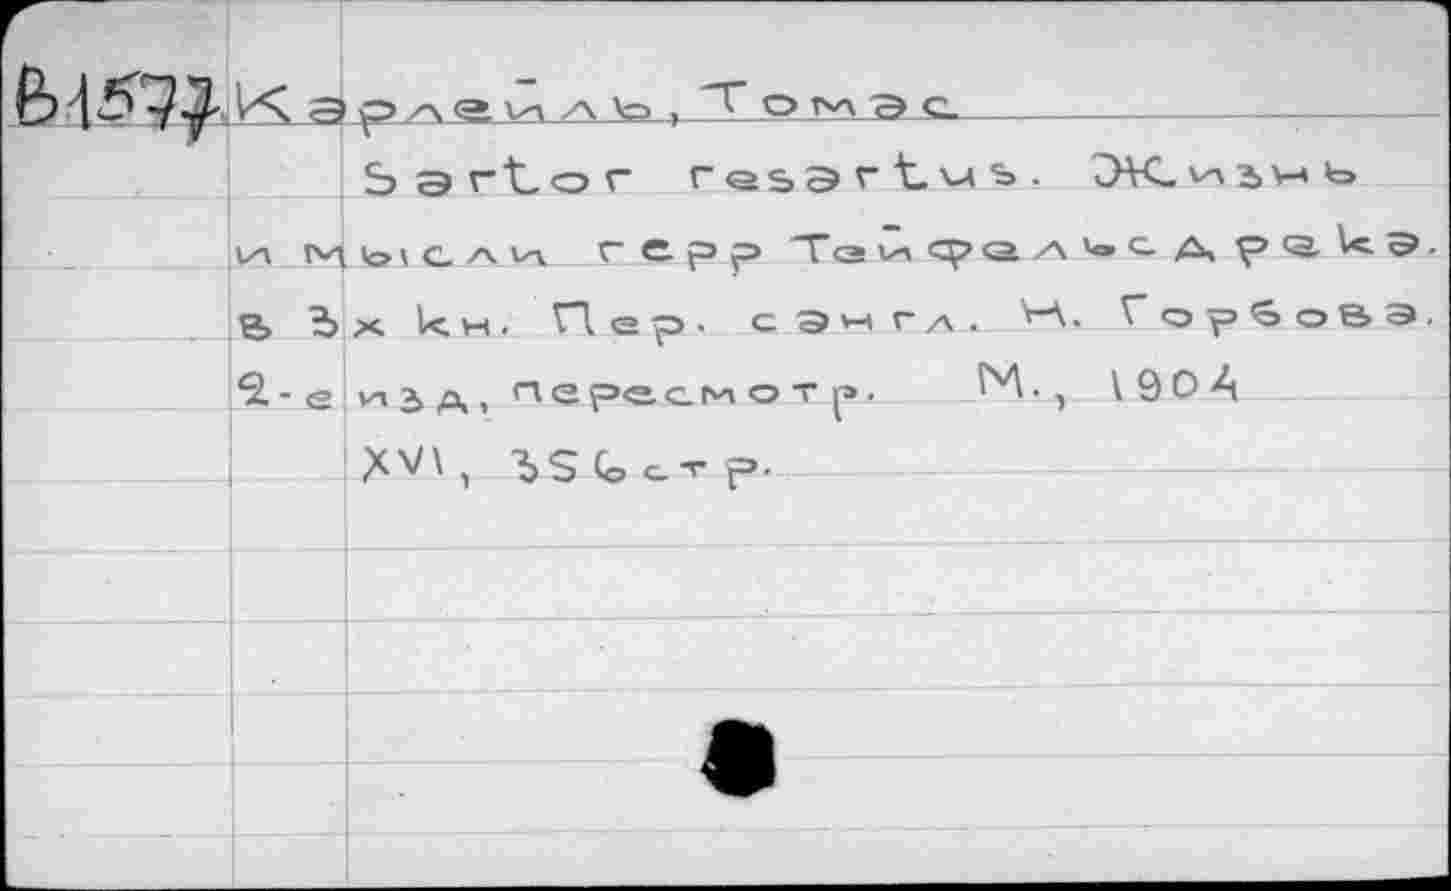 В1577 Карлейль, Томас
Sartor resartus. Жизнь
и мысли герр Тейфельсдрека.
в 3х кн. Пер. с англ. Н. Горбова.
2-е изд, пересмотр. М., 1904
XVI, 356 стр.